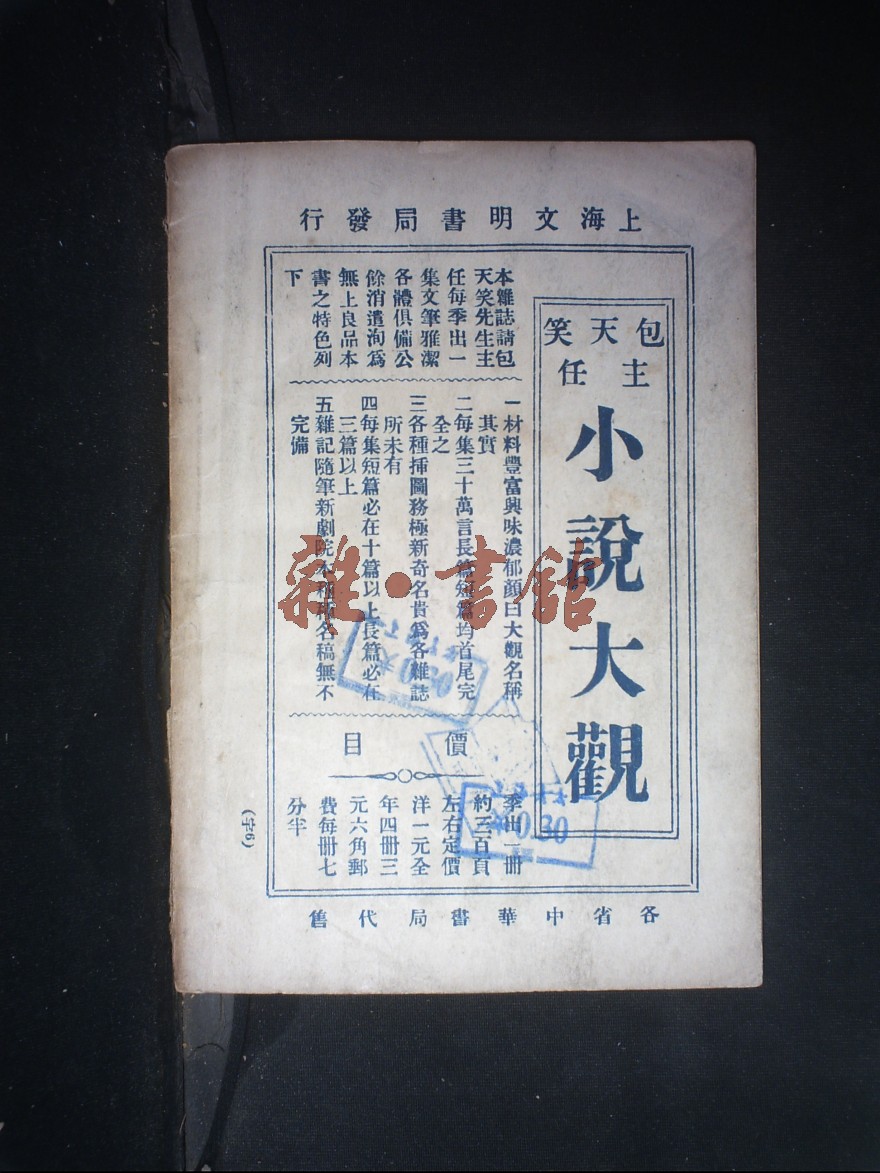 上海文明書局發行
包天笑
主任
小說大觀
本雜誌請包
天笑先生主
任每季出一
集文筆雅潔
各體俱備公
餘消遣洵爲
無上良品本
書之特色列
下
一材料豐富興味濃郁顏曰大觀名稱
其實
二每集三十萬言長篇短篇均首尾完
全之
三各種揷圖務極新奇名貴爲各雜誌
所未有
四每集短篇必在十篇以上長篇必在
三篇以上
五雜記隨筆新劇院本種種名稿無不
完備
價目
季出一冊
約三百頁
左右定價
洋一元全
年四冊三
元六角郵
費每冊七
分半
(字6)
各省中華書局代售
雜·書館
0.30
0.30